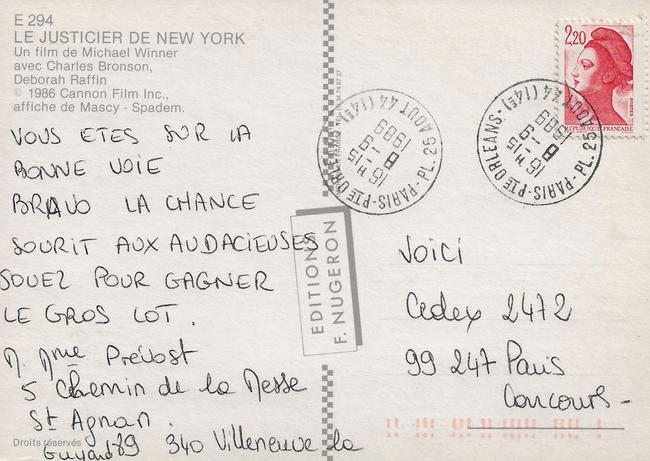 E 294
LE JUSTICIER DE NEW YORK
Un film de Michael Winner
avec Charles Bronson,
Deborah Raffin
© 1986 Cannon Film Inc.,
affiche de Mascy - Spadem.
VOUS ETES SUR LA
BONNE VOIE
BRAVO LA CHANCE
SOURIT AUX AUDACIEUSES
JOUEZ POUR GAGNER
LE GROS LOT.
M. Mme Prévost
5 Chemin de la Messe
St Agnan.
89 340 Villeneuve la
Guyard
Droits réservés
EDITIONS
F. NUGERON
2,20
POSTES
REPUBLIQUE FRANÇAISE
PL. 25 AOUT 44 (14E) - PARIS-PTE ORLEANS
16 H 15
8 -9
1989
PL. 25 AOUT 44 (14E) - PARIS-PTE ORLEANS
16 H 15
8 -9
1989
VOICI
Cedex 2472
99 247 Paris
Concours -